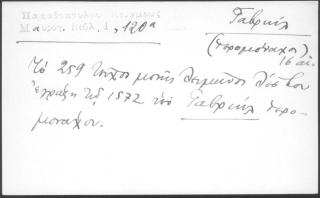 Παπαδοπούλου Κεραμέως
Μαυρογ. Βιβλ. 1, 120α
Γαβριήλ
(ιερομόναχος)
16 αἰ.
Τὸ 259 τεῦχος μονῆς Λειμῶνος Λέσβου
ἐγράφη τῷ 1572 ὑπὸ Γαβριήλ ἱερο-
μονάχου.